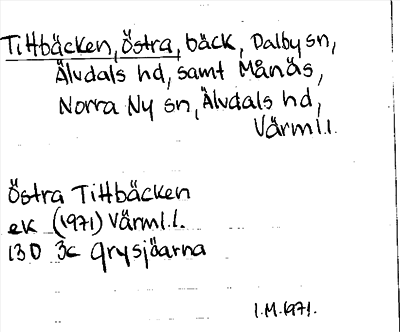 Tittbäcken, Östra, bäck, Dalby sn,
Älvdals hd, samt Månäs,
Norra Ny sn, Älvdals hd,
Värml.l.
Östra Tittbäcken
ek (1971) Värml.l.
13D 3c Grysjöarna
I.M.1971.